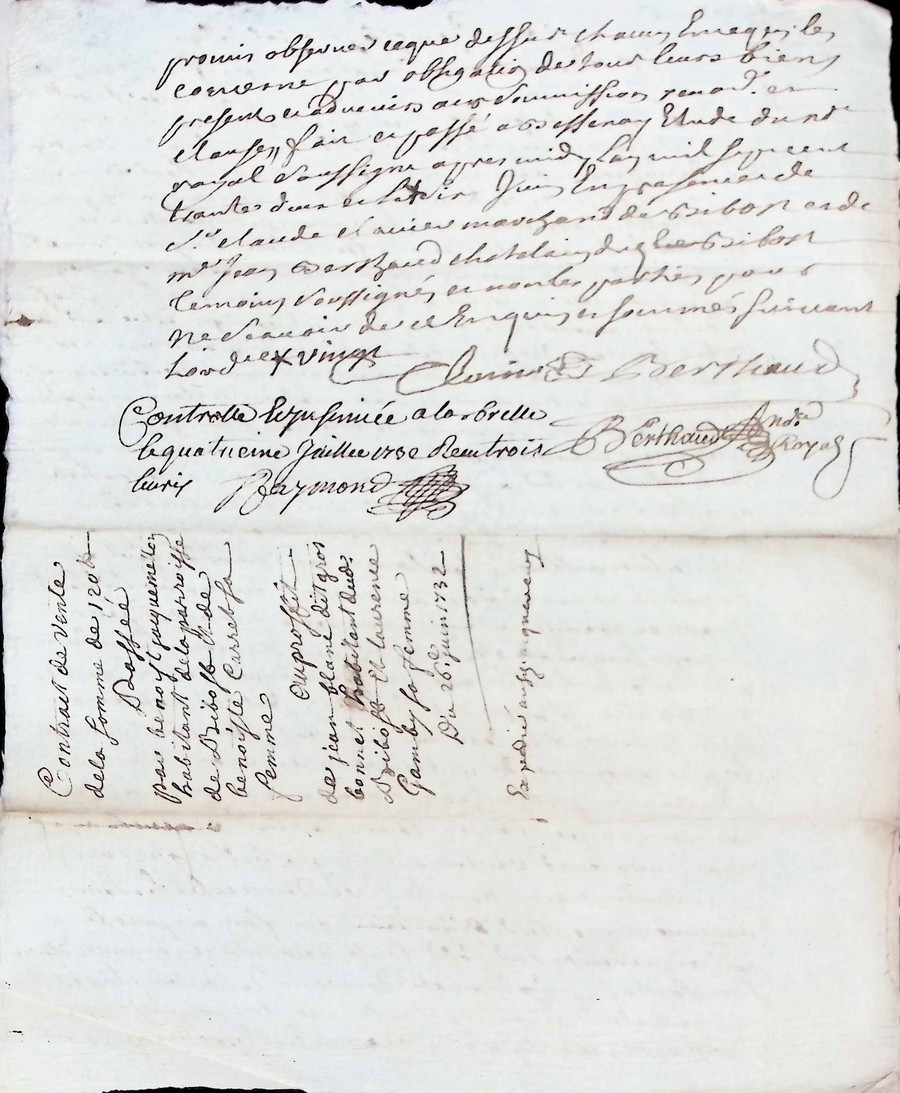 promis observer ceque dessus chacun Encequi les
concerne par obligation de tous leurs biens
presents et aduenirs aux soummissions renon.on et
clauses, fait et passé a Bessenay Etude du no.re
royal soussigné apres midy Lan mil sept cent
trante deux et le Juin En presences de
s.r claude marchand de Bibost et de
m.e Jean Berthaud chatelain de Bibost
temoins soussignés et non les parties pour
ne scauoir de ce Enquis et sommés suiuant
Lord.ce x vingt
Berthaud
Controllé a Larbrelle
le quatrieme Juillet 1732 Receu trois
liures Raymond
Berthaud no.re Royal
Contrait de vente
dela somme de 120 lt
Passée
par benoyt jaquemeton
habitant dela parroisse
de Bibost Et de
benoiste Carret sa
femme
au proffit
de jean blanc dit gros
bonnet habitant dud.
Bibost Et Laurence
Gamby sa femme
Du 26.e juin 1732
Expedié aux